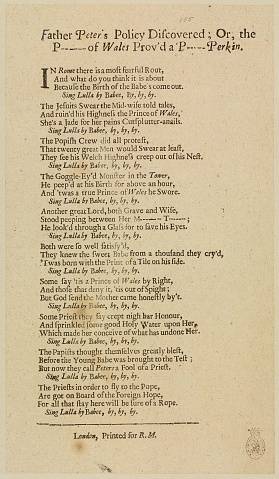 Father Peter's Policy Discovered; Or, the
P------ of Wales Prov'd a P---- Perkin.
IN Rome there is a most fearful Rout,
And what do you think it is about
Because the Birth of the Babe's come out.
Sing Lulla by Babee, by, by, by.
The Jesuits Swear the Mid-wife told tales,
And ruin'd his Highness the Prince of Wales,
She's a Jade for her pains Cutsplutter-anails.
Sing Lulla by Babee, by, by, by.
The Popish Crew did all protest,
That twenty great Men would Swear at least,
They see his Welch Highness creep out of his Nest.
Sing Lulla by Babee, by, by, by.
The Goggle-Ey'd Monster in the Tower,
He peep'd at his Birth for above an hour,
And 'twas a true Prince of Wales he Swore.
Sing Lulla by Babee, by, by, by.
Another great Lord, both Grave and Wise,
Stood peeping between Her M------ T------;
He look'd through a Glass for to save his Eyes.
Sing Lulla by Babee, by, by, by.
Both were so well satisfy'd,
They knew the sweet Babe from a thousand they cry'd,
'Twas born with the Print of a Tile on his side.
Sing Lulla by Babee, by, by, by.
Some say 'tis a Prince of Wales by Right,
And those that deny it, 'tis out of Spight;
But God send the Mother came honestly by't.
Sing Lulla by Babee, by, by, by.
Some Priest they say crept nigh her Honour,
And sprinkled some good Holy Water upon Her,
Which made her conceive of what has undone Her.
Sing Lulla by Babee, by, by, by.
The Papists thought themselves greatly blest,
Before the Young Babe was brought to the Test;
But now they call Peters a Fool of a Priest.
Sing Lulla by Babee, by, by, by.
The Priests in order to fly to the Pope,
Are got on Board of the Foreign Hope,
For all that stay here will be sure of a Rope.
Sing Lulla by Babee, by, by, by.
London, Printed for R. M.